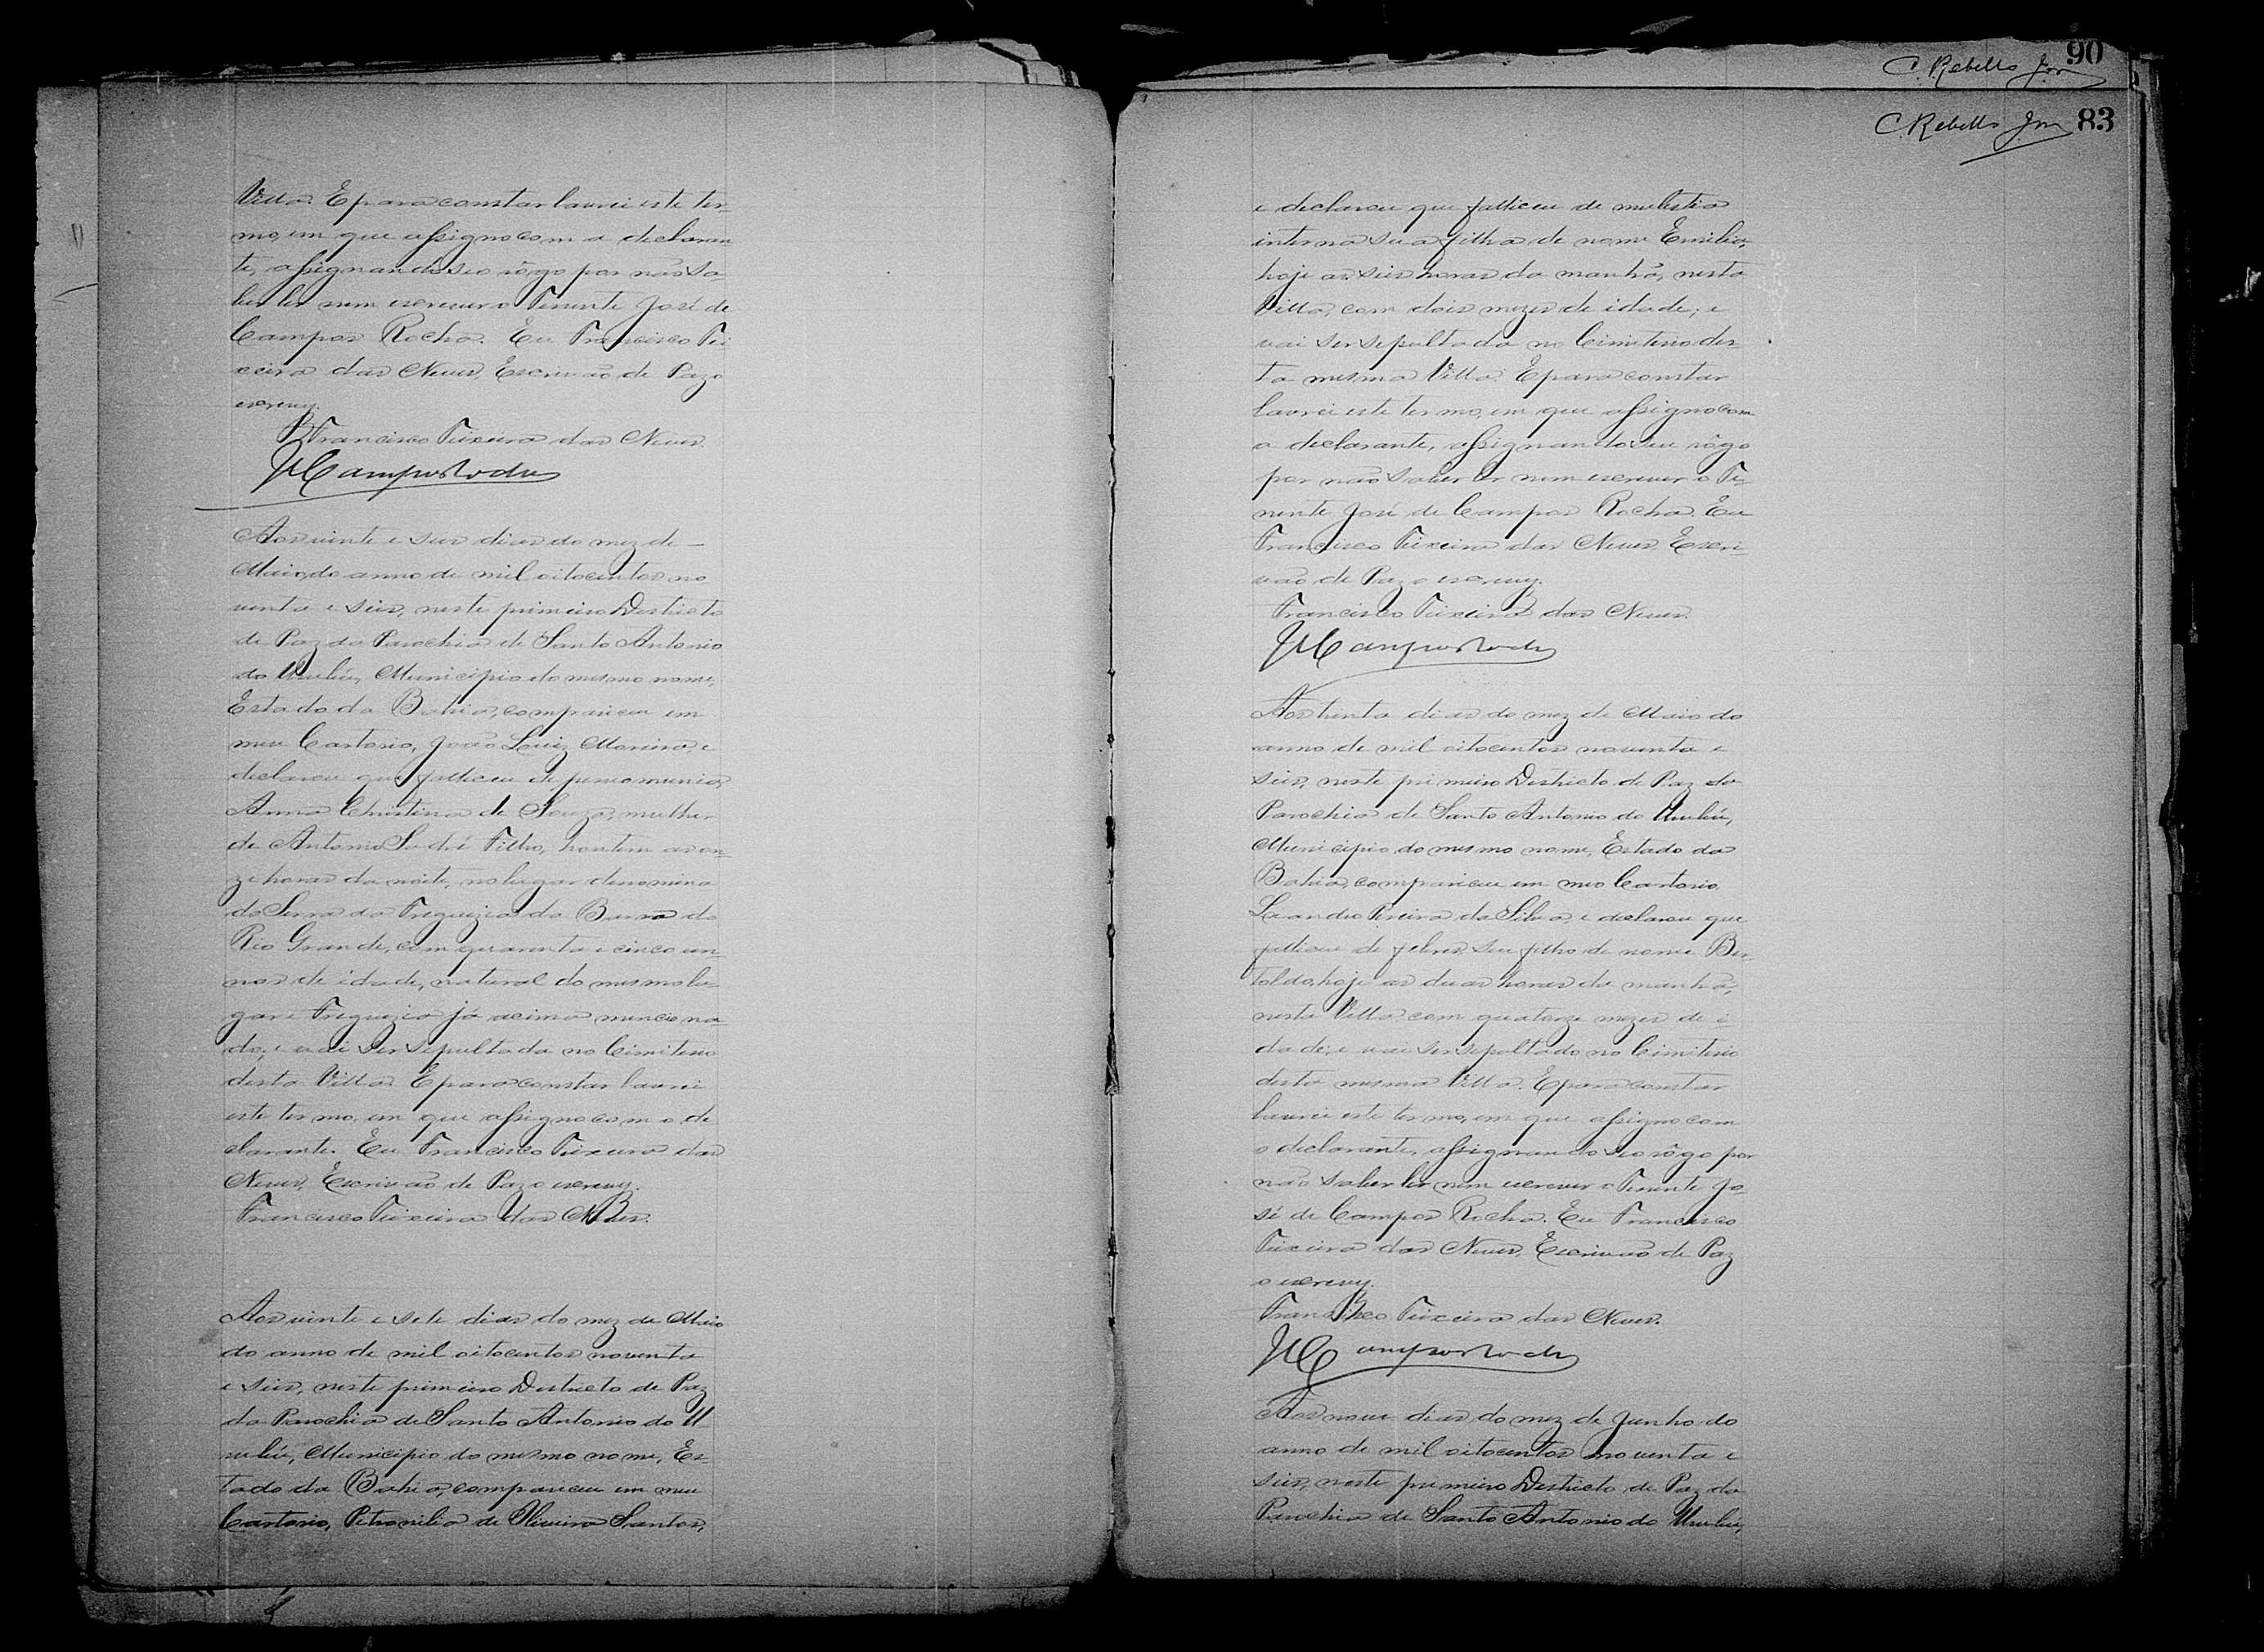 Villa. E para constar lavrei este ter-
mo, em que assigno com a declaran
te, assignando seo rôgo por não sa-
ber ler nem escrever o Tenente José de
Campos Rocha. Eu Francisco Tei
xeira das Neves, Escrivão de Paz o
escrevy.
Francisco Teixeira das Neves.
JCamposRocha
Aos vinte e seis dias do mez de
Maio, do anno de mil oitocentos no
venta e seis, neste primeiro Destricto
de Paz da Parochia de Santo Antonio
do Urubú, Municipio do mesmo nome,
Estado da Bahia, compareceu em
meu Cartorio, João Luiz Moreira, e
declarou que falleceu de pneomunia,
Anna Christina de Souza, mulher
de Antonio Sodré Filho, hontem as on-
ze horas da noite, no lugar denomina
do Serra da Freguezia da Barra do
Rio Grande, com quarenta e cinco an-
nos de idade, natural do mesmo lu-
gar e Freguezia já acima menciona-
da; e vai ser sepultada no Cimiterio
desta Villa. E para constar lavrei
este termo, em que assigno com o de
clarante. Eu Francisco Teixeira das
Neves, Escrivão de Paz o escrevy.
Francisco Teixeira das Neves.
Aos vinte e sete dias do mez de Maio
do anno de mil oitocentos noventa
e seis, neste primeiro Destricto de Paz
da Parochia de Santo Antonio do U
rubú, Municipio do mesmo nome, Es-
tado da Bahia, compareceu em meu
Cartorio, Petronilia de Oliveira Santos,
90
C. Rebello Jor
C. Rebello Jor 83
e declarou que falleceu de mulestia
interna sua filha de nome Emilia,
hoje as seis horas da manhã, nesta
Villa, com dois mezes de idade; e
vai ser sepultada no Cimiterio des-
ta mesma Villa. E para constar
lavrei este termo, em que assigno com
a declarante, assignando seu rôgo
por não saber ler nem escrever o Te-
nente José de Campos Rocha. Eu
Francisco Teixeira das Neves, Escri-
vão de Paz o escrevy.
Francisco Teixeira das Neves.
JCamposRocha
Aos trinta dias do mez de Maio do
anno de mil oitocentos noventa e
seis, neste primeiro Destricto de Paz da
Parochia de Santo Antonio do Urubú,
Municipio do mesmo nome, Estado da
Bahia, compareceu em meo Cartorio,
Leandro Pereira da Silva, e declarou que
falleceu de febres, seu filho de nome Ber-
toldo, hoje as duas horas da manhã,
nesta Villa com quatorze mezes de i-
dade; e vai ser sepultado no Cimiterio
desta mesma Villa. E para constar
lavrei este termo, em que assigno com
o declarante, assignando seo rôgo por
não saber ler nem escrever o Tenente Jo-
sé de Campos Rocha. Eu Francisco
Teixeira das Neves, Escrivão de Paz
o escrevy.
Francisco Teixeira das Neves.
JCamposRocha
Aos nove dias do mez de Junho do
anno de mil oitocentos noventa e
seis, neste primeiro Destricto de Paz da
Parochia de Santo Antonio do Urubú,